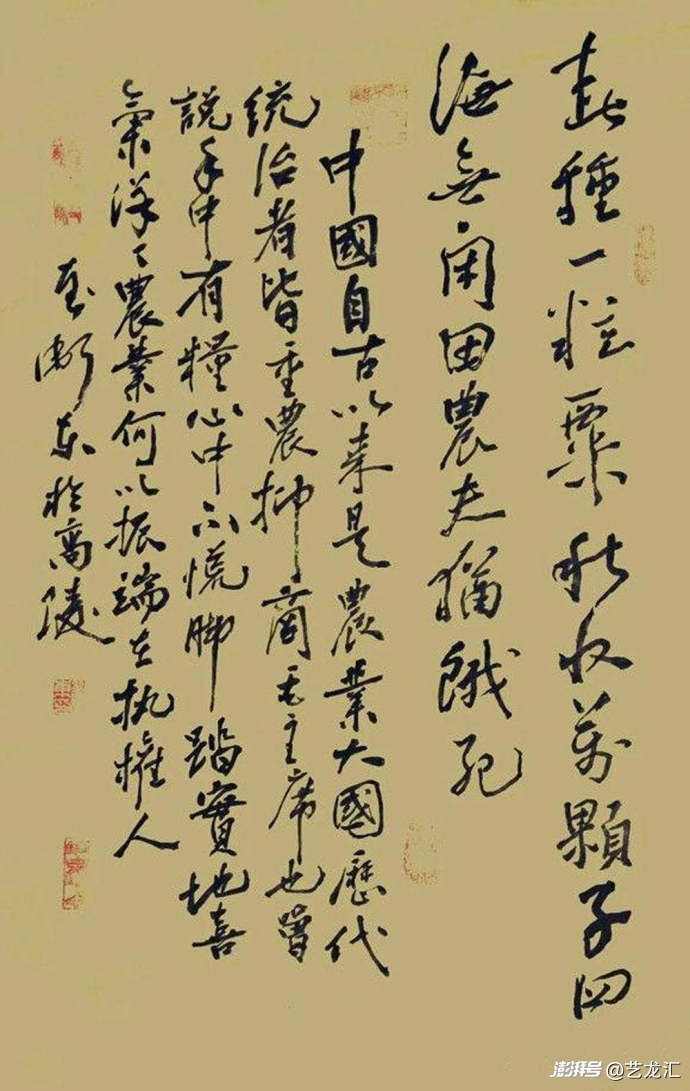 春種一粒粟秋收萬顆子四
海無閑田農夫猶餓死
中國自古以來是農業大國歷代
統治者皆重農抑商毛主席也曾
說手中有糧心中不慌腳踏實地喜
氣洋〻農業何以振端在執權人
東於高陵
澎湃号 @艺龙汇